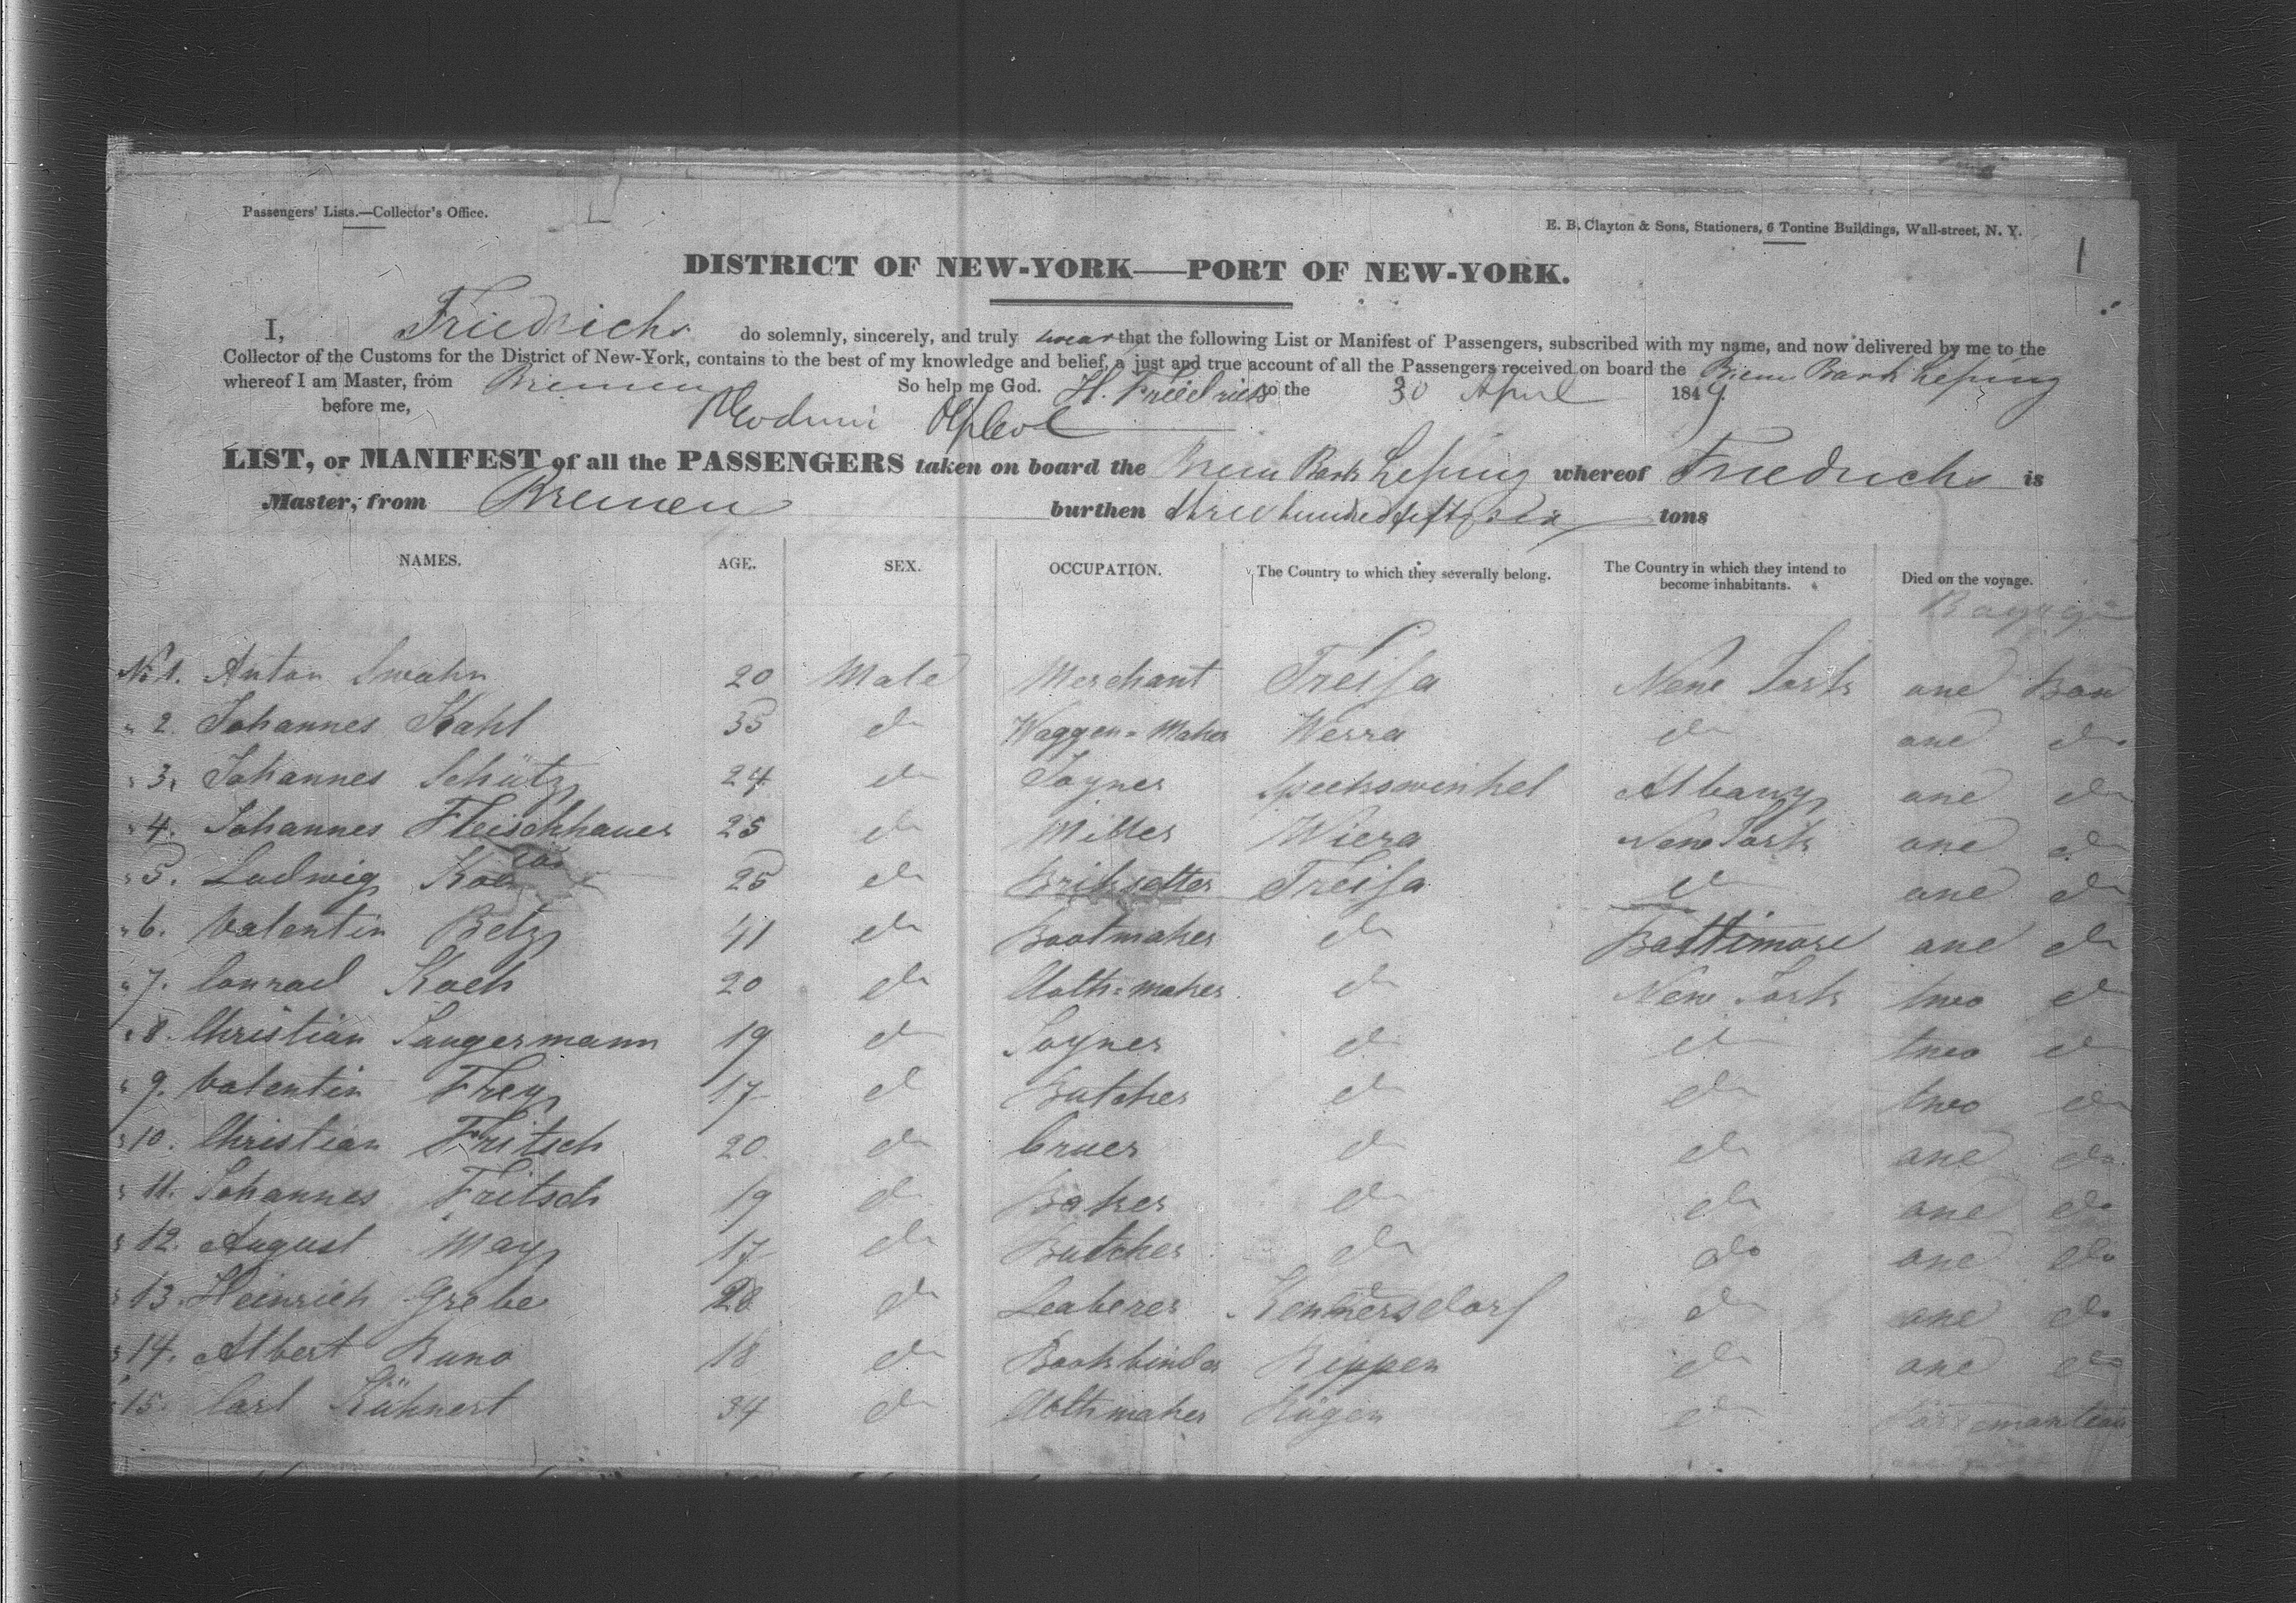 Passengers' Lists.—Collector's Office.
E. B. Clayton & Sons, Stationers, 6 Tontine Buildings, Wall-street, N. Y.
1
DISTRICT OF NEW-YORK—PORT OF NEW-YORK.
I, Friedrichs do solemnly, sincerely, and truly swear that the following List or Manifest of Passengers, subscribed with my name, and now delivered by me to the
Collector of the Customs for the District of New-York, contains to the best of my knowledge and belief, a just and true account of all the Passengers received on board the Brem Bark Leſsing
whereof I am Master, from Bremen So help me God. H. Friedrichs to the 30 April 1849
before me,
LIST, or MANIFEST of all the PASSENGERS taken on board the Brem Bark Leſsing whereof Friedrichs is
Master, from Bremen burthen three hundred fifty six tons
NAMES. AGE. SEX. OCCUPATION. The Country to which they severally belong. The Country in which they intend to become inhabitants. Died on the voyage.
Bagage
No 1. Anton Swahn 20 Male Merchant Treiſa New York one Box
" 2. Johannes Kahl 35 do Waggen-Maker Werra do one do
" 3. Johannes Schütz 24 do Joyner Speckswinkel Albany one do
" 4. Johannes Fleischhauer 25 do Miller Wiera New York one do
" 5. Ludwig 25 do Briksetter Treiſa do one do
" 6. Valentin Betz 41 do Bootmaker do Baltimore one do
" 7. Conrad Koch 20 do Cloth-maker do New York two do
" 8. Christian Sangermann 19 do Joyner do do two do
" 9. Valentin Frey 17 do Butcher do do two do
" 10. Christian Fritsch 20 do Cruer do do one do
" 11. Johannes Fritsch 19 do Baker do do one do
" 12. August May 17 do Butcher do do one do
" 13. Heinrich Grebe 28 do Leaberer do one do
" 14. Albert Runo 18 do Bookbinder Rippen do one do
" 15. Carl Kühnert 34 do Clothmaker Rügen do